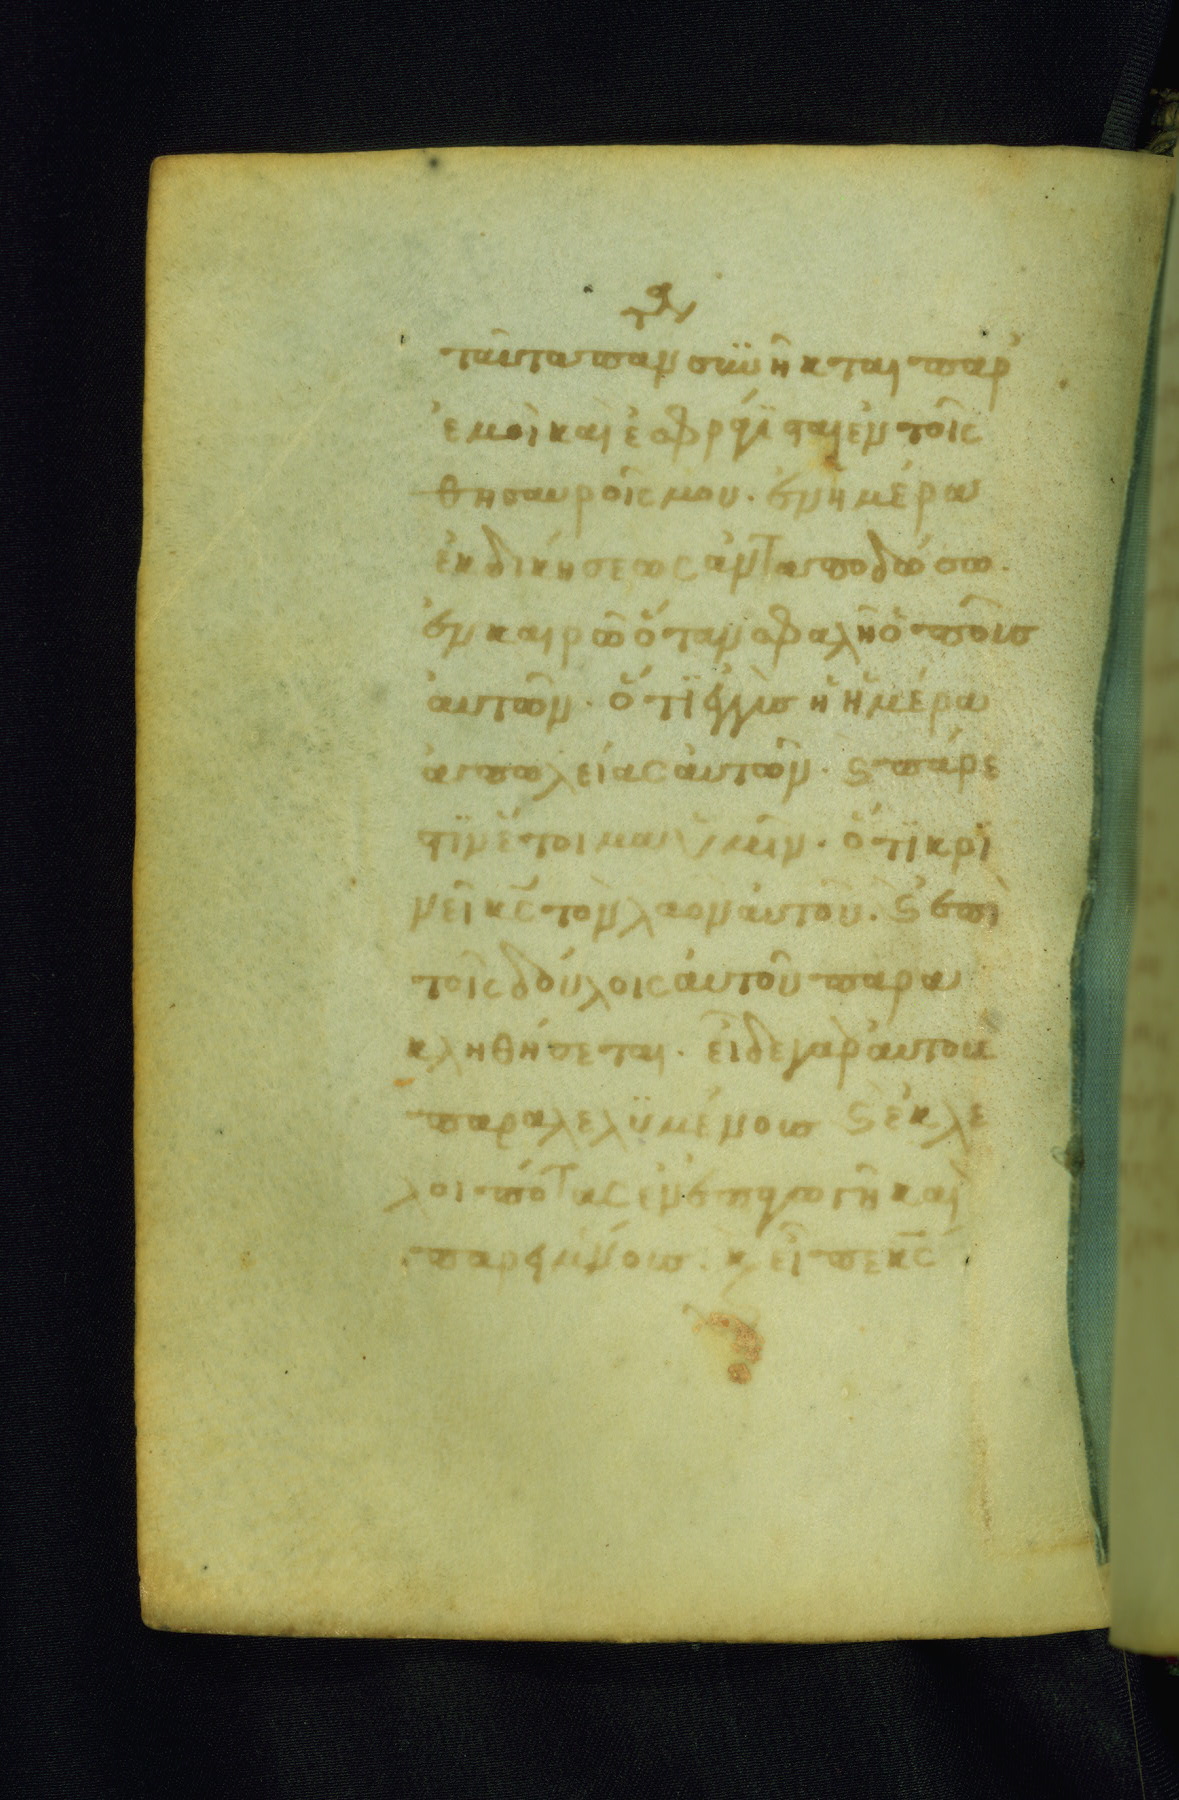 ταῦτα παν συϋῆκται παρ
ἐμοὶ καὶ ἐσφράγϊσται ἐν τοῖς
θησαυροῖς μου. ἐν ἡμέρα
ἐκδικήσεως ἀνταποδώσω.
ἐν καιρῶ ὅταν σφαλῆ ὁ ποῦσ
ἀυτῶν. ὅτϊ ἐγγὺσ ἡ ἡμέρα
ἀπωλείας ἀυτῶν. ϛ πάρε
στϊν ἕτοιμα ὑμῖν. ὅτϊ κρϊ
νεῖ κς τὸν λαὸν ἀυτοῦ. ϛ ἐπὶ
τοῖς δούλοις ἀυτοῦ παρα
κληθήσεται. εἶδε γὰρ ἀυτοὺ
παραλελϋμένουσ ϛ ἐκλε
λοιπότας ἐν ἐπαγωγῆ καὶ
παρειμένουσ. κ εἶπε κς